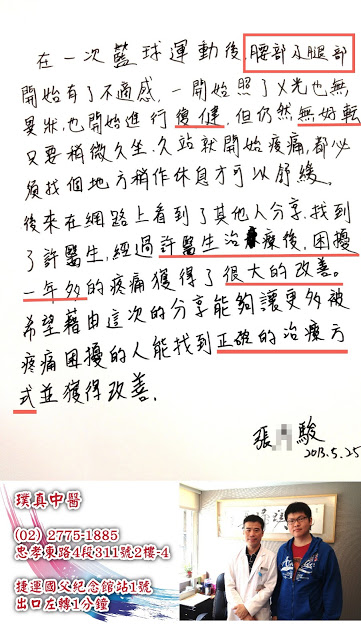 在一次籃球運動後,腰部及腿部
開始有了不適感,一開始照了X光也無
異狀,也開始進行復健,但仍然無好轉
只要稍微久坐、久站就開始疼痛,都必
須找個地方稍作休息才可以舒緩。
後來在網路上看到了其他人分享,找到
了許醫生,經過許醫生治療後,困擾
一年多的疼痛獲得了很大的改善。
希望藉由這次的分享能夠讓更多被
疼痛困擾的人能找到正確的治療方
式並獲得改善.
張 駿
2013.5.25
璞真中醫
(02) 2775-1885
忠孝東路4段311號2樓-4
捷運國父紀念館站1號
出口左轉1分鐘